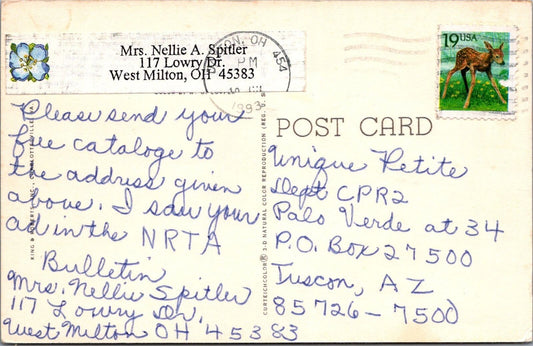 Mrs. Nellie A. Spitler
117 Lowry Dr.
West Milton, OH 45383
OH 454
PM
1993
19 USA
Please send your
free cataloge to
the address given
above. I saw your
ad in the NRTA
Bulletin
Mrs. Nellie Spitler
117 Lowry Dr.
West Milton OH 45383
POST CARD
CURTEICHCOLOR® 3-D NATURAL COLOR REPRODUCTION
Unique Petite
Dept CPR2
Palo Verde at 34
P.O. Box 27500
Tuscon, AZ
85726-7500